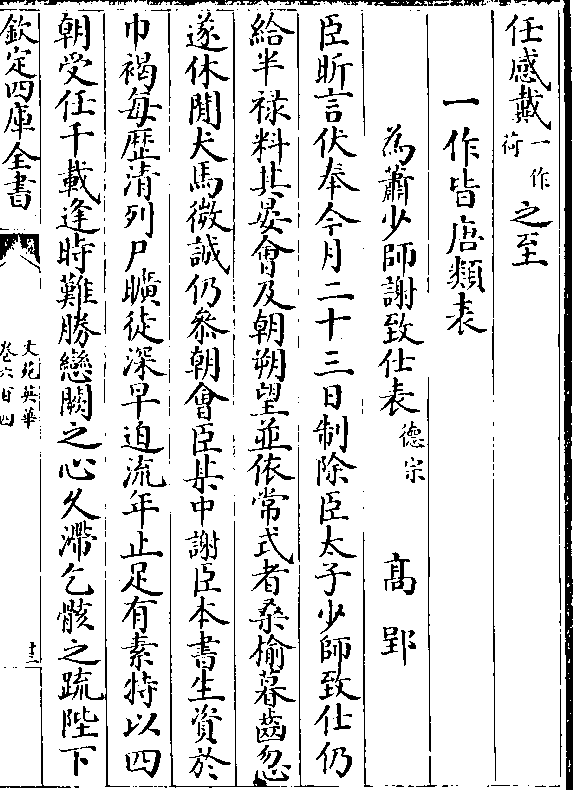 任感戴一作荷之至
一作皆唐類表
為蕭少師謝致仕表德宗 髙郢
臣昕言伏奉今月二十三日制除臣太子少師致仕仍
給半禄料其晏會及朝朔望並依常式者桑榆暮齒忽
遂休閒犬馬微誠仍叅朝會臣某中謝臣本書生資於
巾褐每歴清列尸曠徒深早迫流年止足有素特以四
朝受任千載逢時難勝戀闕之心久滯乞骸之疏陛下
欽定四庫全書
文苑英華
卷六百四
十三